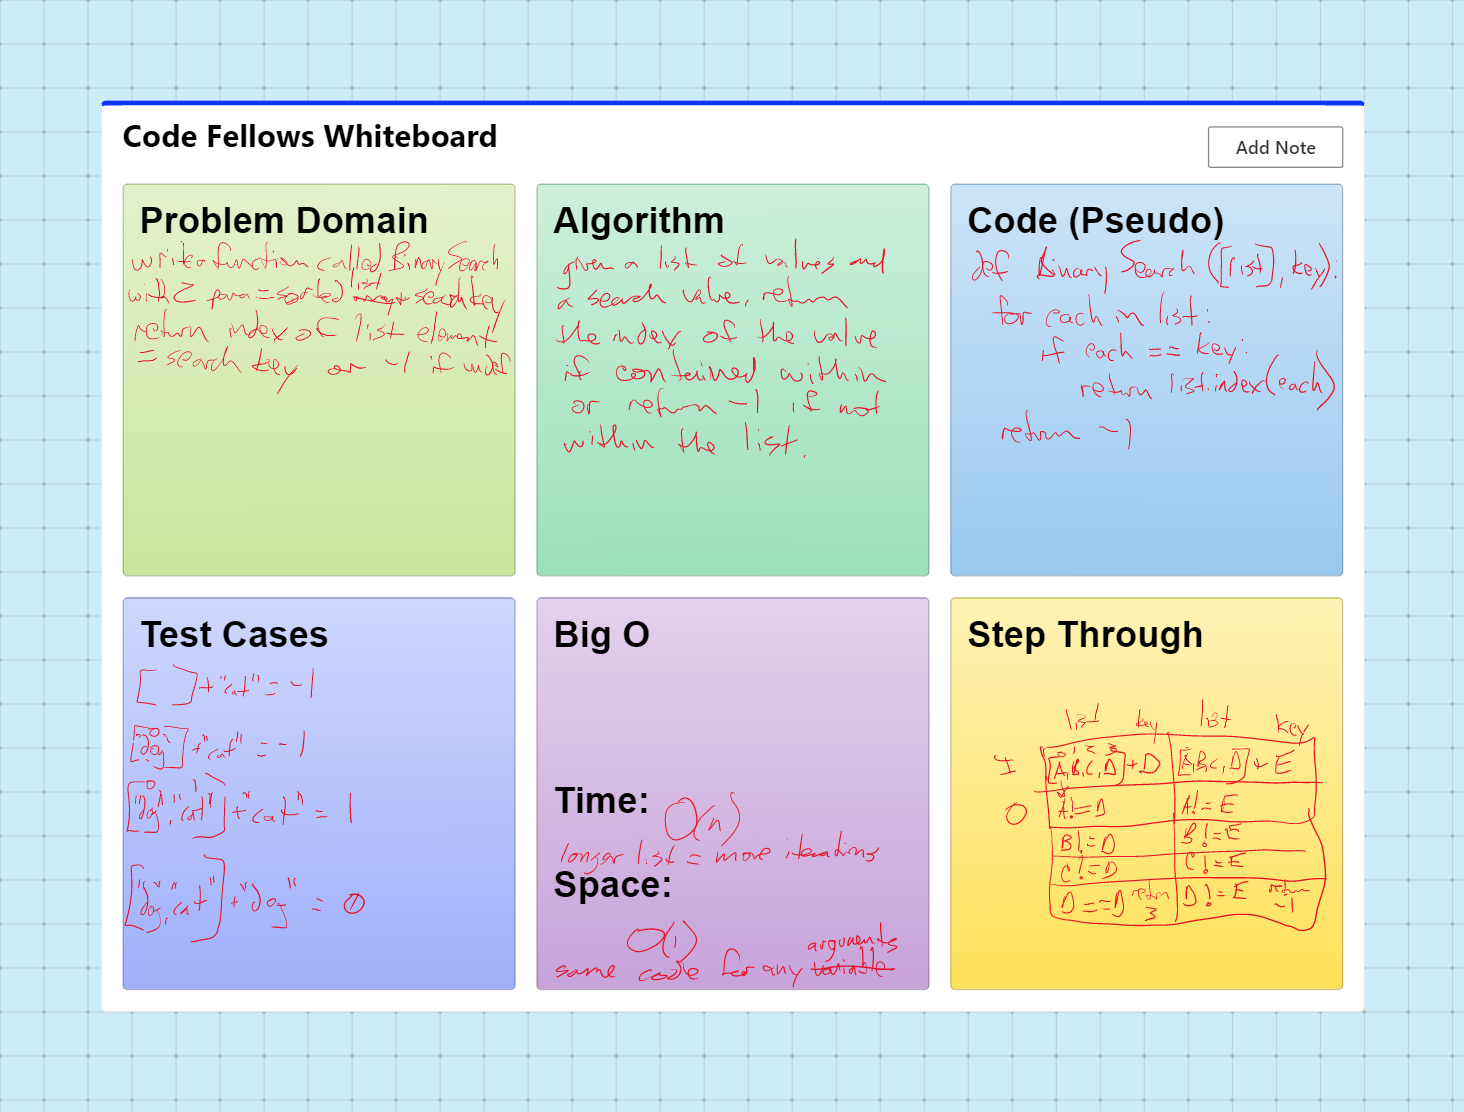 Code Fellows Whiteboard
Add Note
Problem Domain
write a function called BinarySearch
with 2 para = sorted list search key
return index of list element
= search key or -1 if undef
Algorithm
given a list of values and
a search value, return
the index of the value
if contained within
or return -1 if not
within the list.
Code (Pseudo)
def Binary Search ([list], key):
for each in list:
if each == key:
return list.index(each)
return -1
Test Cases
[ ] + "cat" = -1
0
["dog"] + "cat" = -1
0 1
["dog", "cat"] + "cat" = 1
["dog", "cat"] + "dog" = 0
Big O
Time: O(n)
longer list = more iterations
Space:
O(1)
arguments
same code for any variable
Step Through
list key list key
0 1 2 3
I [A,B,C,D] + D [A,B,C,D] + E
O A != D A! = E
B! = D B! = E
C! = D C! = E
D == D return 3 D! = E return -1